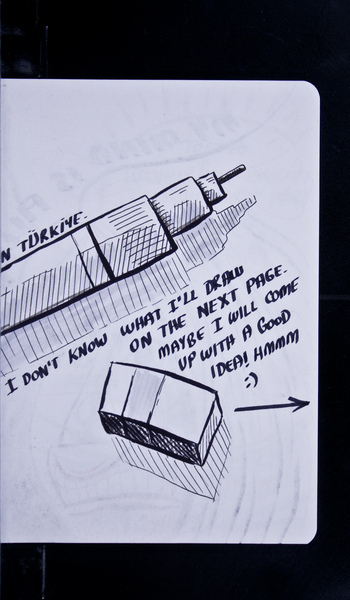 N TÜRKIYE.
I DON'T KNOW WHAT I'LL DRAW
ON THE NEXT PAGE.
MAYBE I WILL COME
UP WITH A GOOD
IDEA! HMMM
:)